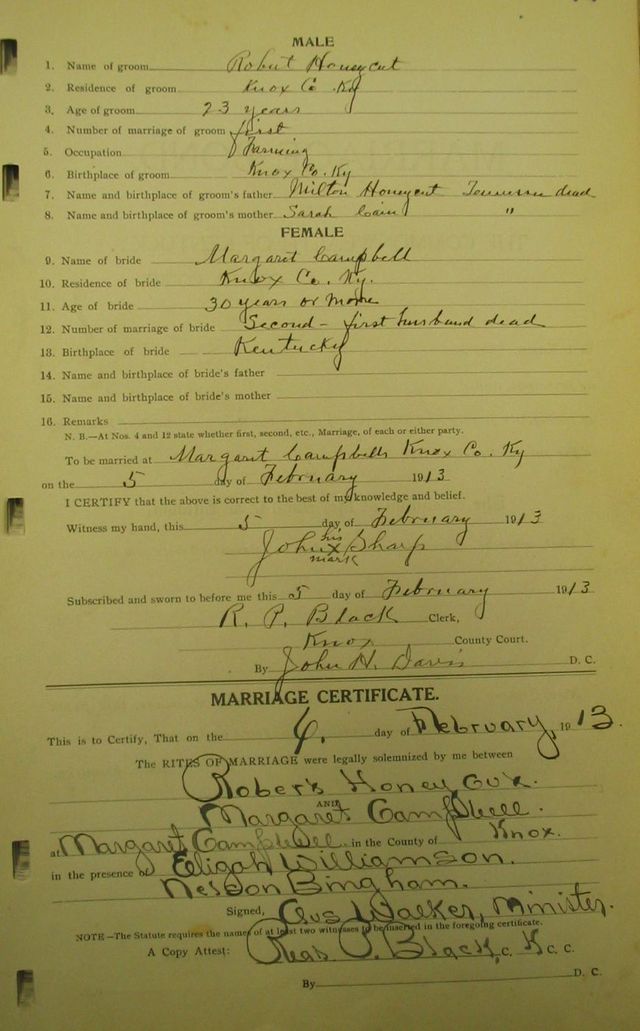 MALE
1. Name of groom Robert Honeycut
2. Residence of groom Knox Co. Ky
3. Age of groom 23 years
4. Number of marriage of groom first
5. Occupation Farming
6. Birthplace of groom Knox Co. Ky
7. Name and birthplace of groom's father Milton Honeycut Tennessee dead
8. Name and birthplace of groom's mother Sarah Cain "
FEMALE
9. Name of bride Margaret Campbell
10. Residence of bride Knox Co. Ky.
11. Age of bride 30 years or more
12. Number of marriage of bride Second - first husband dead
13. Birthplace of bride Kentucky
14. Name and birthplace of bride's father
15. Name and birthplace of bride's mother
16. Remarks
N. B.—At Nos. 4 and 12 state whether first, second, etc., Marriage, of each or either party.
To be married at Margaret Campbells Knox Co. Ky
on the 5 day of February 1913
I CERTIFY that the above is correct to the best of my knowledge and belief.
Witness my hand, this 5 day of February 1913
his
John X Sharp
mark
Subscribed and sworn to before me this 5 day of February 1913
R. P. Black Clerk,
Knox County Court.
By John H. Davis D. C.
MARRIAGE CERTIFICATE.
This is to Certify, That on the 6. day of February, 1913.
The RITES OF MARRIAGE were legally solemnized by me between
Robers Honey Cux.
AND
Margaret Campbell.
at Margaret Campbell in the County of Knox.
in the presence of Eligah Williamson.
Nelson Bingham.
Signed, Gus Walker, Minister.
NOTE—The Statute requires the names of at least two witnesses to be inserted in the foregoing certificate.
A Copy Attest: P. Black, C. K C. C.
By D. C.